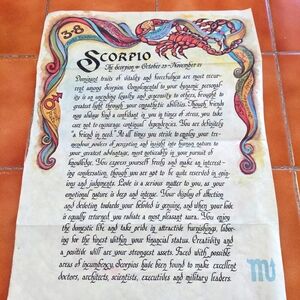 3-8
SCORPIO
The Scorpion • October 23 - November 21
Dominant traits of vitality and forcefulness are most recur-
rent among Scorpios. Complemental to your dynamic personal-
ity is an unending loyalty and generosity to others, brought to
greatest light through your empathetic abilities. Though friends
may always find a confidant in you in times of stress, you take
care not to encourage continual dependencies. You are definitely
"a friend in need." At all times you strive to employ your tre-
mendous powers of perception and insight into human nature to
your greatest advantage, most noticeably in your pursuit of
knowledge. You express yourself freely and make an inter-
esting conversation, though you are apt to be quite reserved in opin-
ions and judgments. Love is a serious matter to you, as your
emotional nature is deep and intense. Great display of affection
and devotion towards your beloved is genuine, and when your love
is equally returned you radiate a most pleasant aura. You enjoy
the domestic life and take pride in attractive furnishings, labor-
ing for the finest within your financial status. Creativity and
a positive will are your strongest assets. Faced with possible
areas of incumbency, Scorpios have been found to make excellent
doctors, architects, scientists, executives and military leaders.